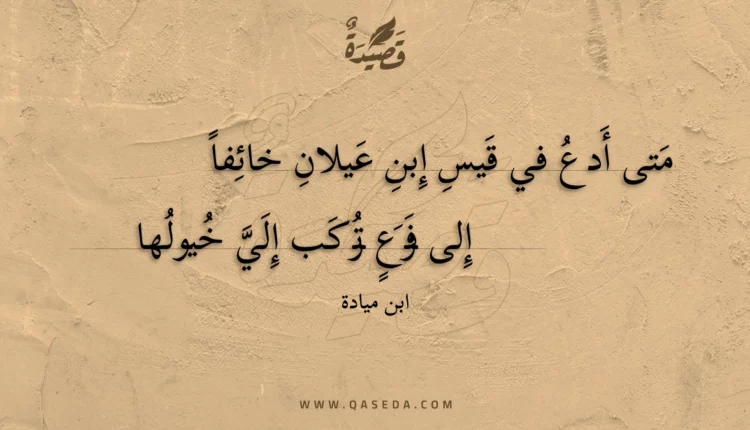 قَصِيدَةٌ
مَتى أَدعُ في قَيسِ إِبنِ عَيلانِ خائِفاً
إِلى فَزَعٍ تُركَب إِلَيَّ خُيولُها
ابن ميادة
WWW.QASEDA.COM